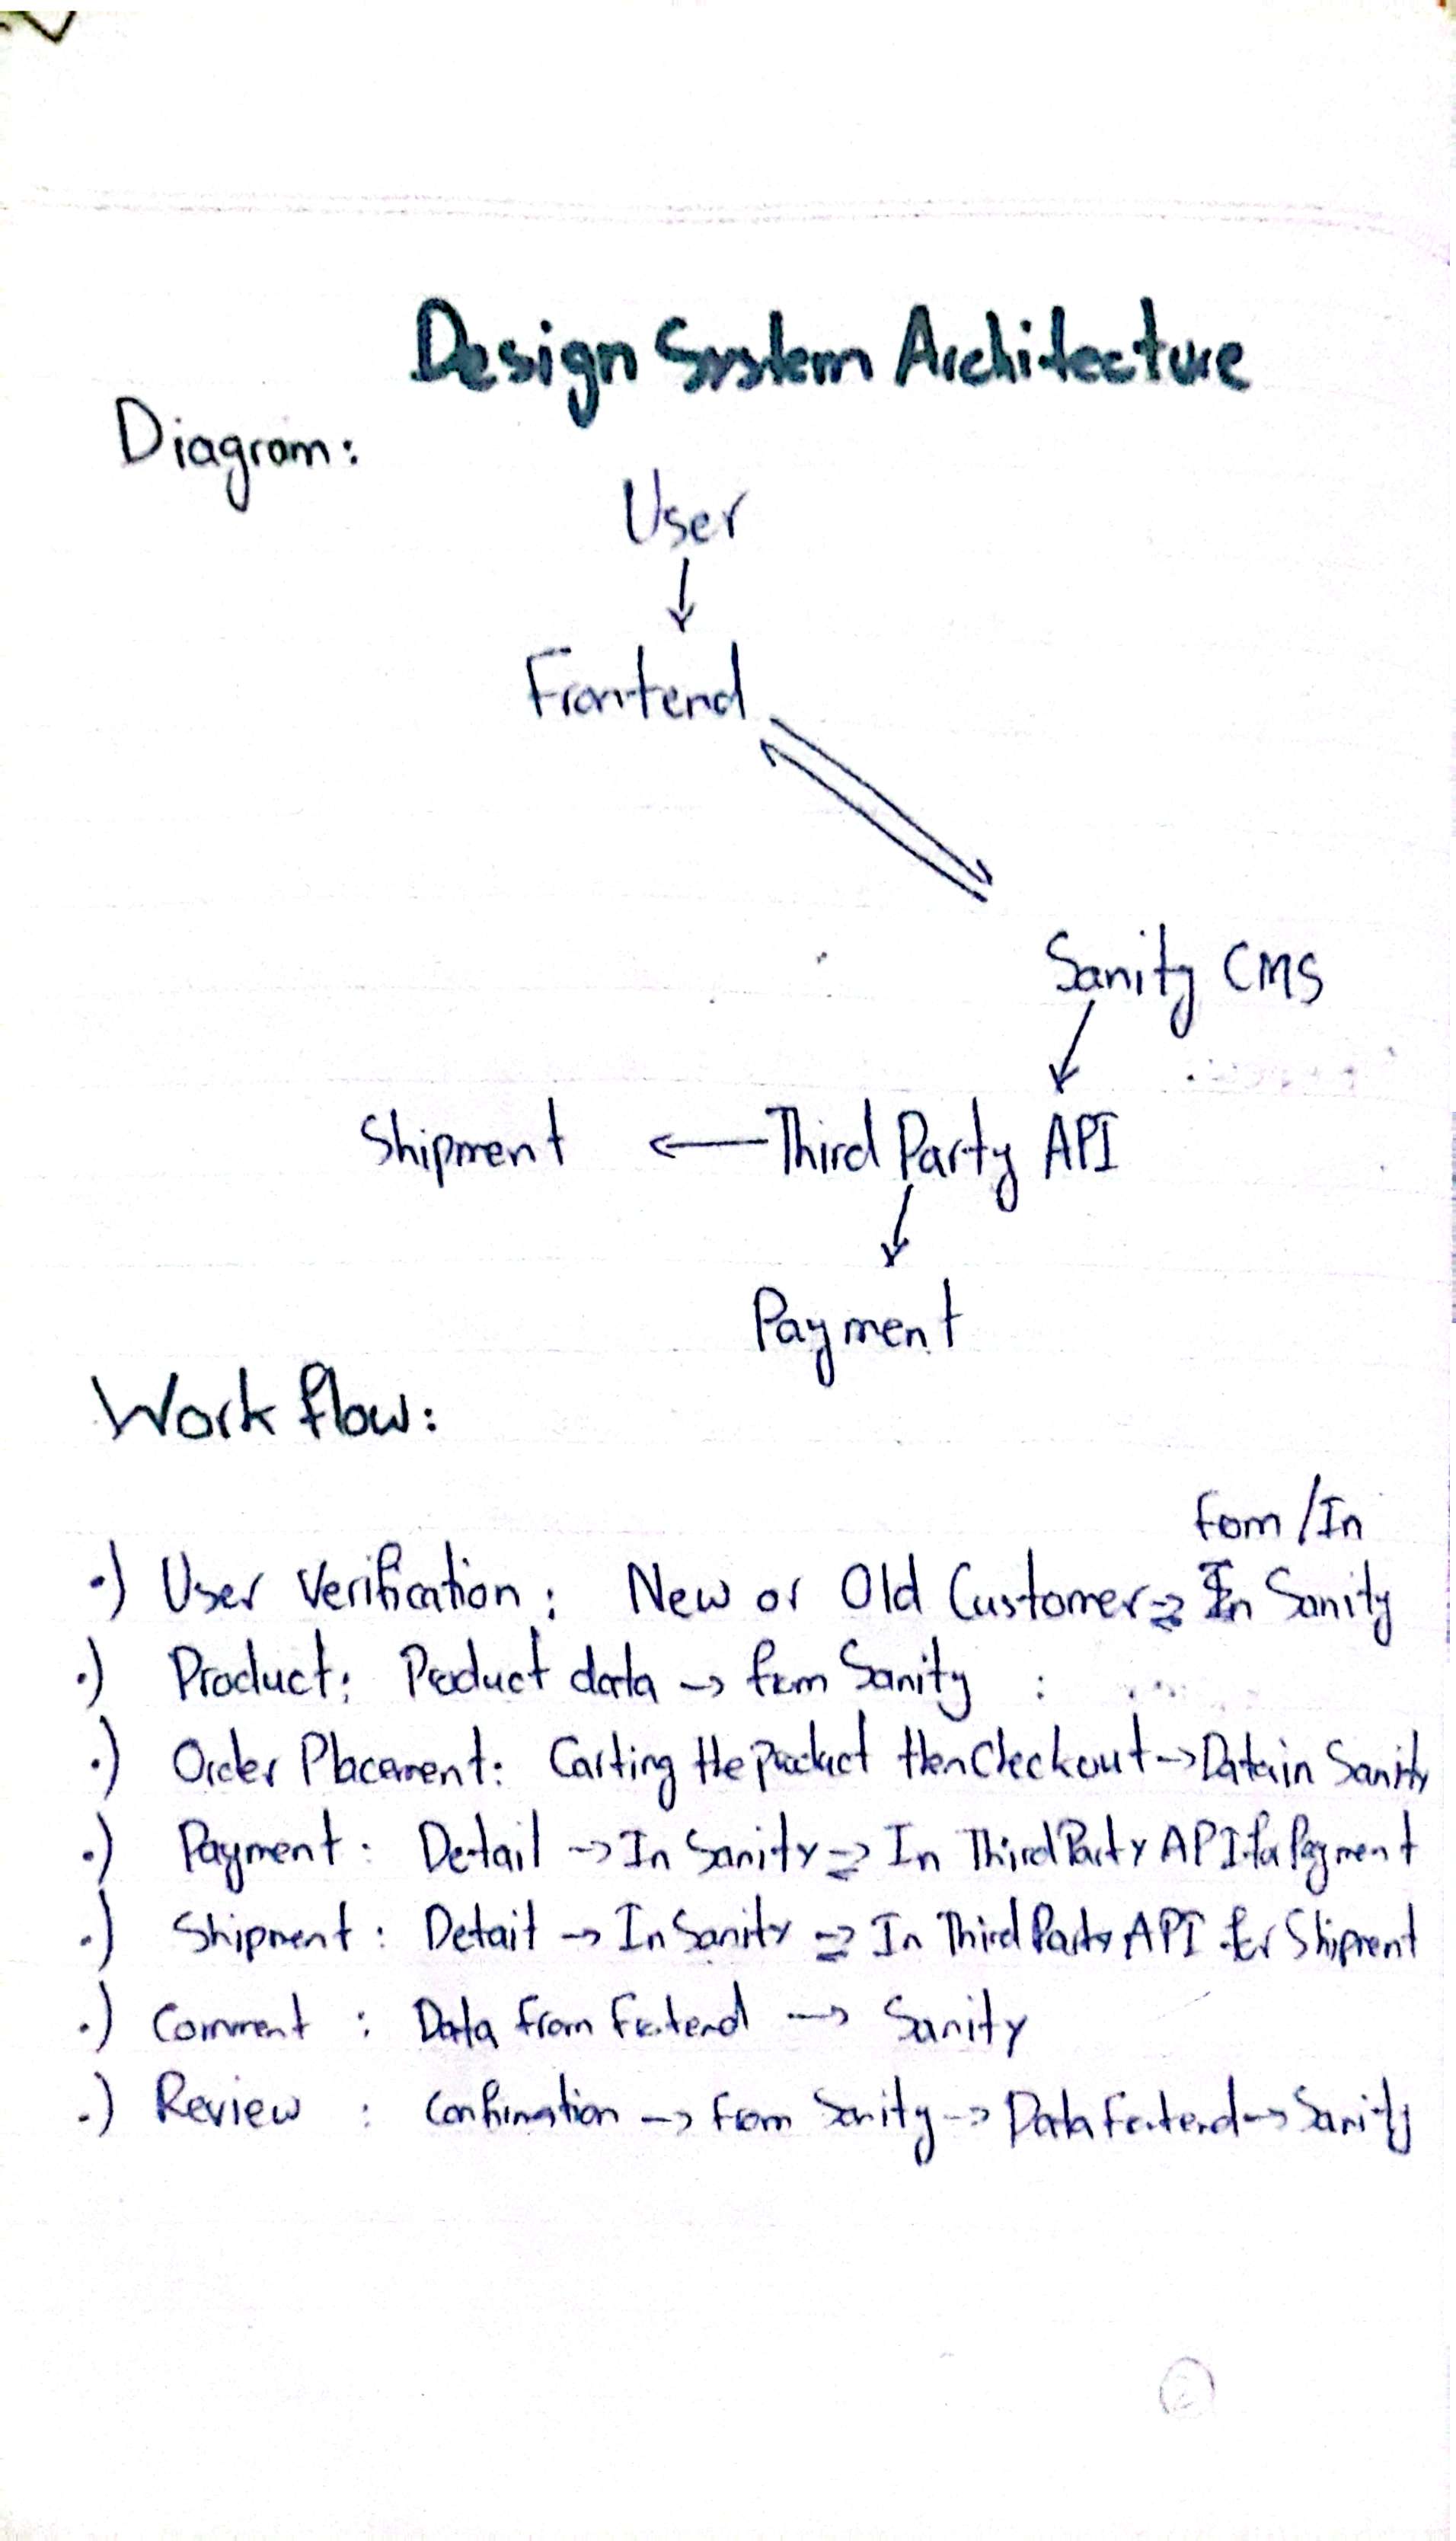 Design System Architecture
Diagram:
User
↓
Frontend
Sanity CMS
Shipment ← Third Party API
Payment
Work flow:
from /In
.) User Verification : New or Old Customer ⇌ In Sanity
.) Product : Product data → from Sanity
.) Order Placement : Carting the product then Checkout → Data in Sanity
.) Payment : Detail → In Sanity ⇌ In Third Party API for Payment
.) Shipment : Detail → In Sanity ⇌ In Third Party API for Shipment
.) Comment : Data from Frontend → Sanity
.) Review : Confirmation → from Sanity → Data Frontend → Sanity
2